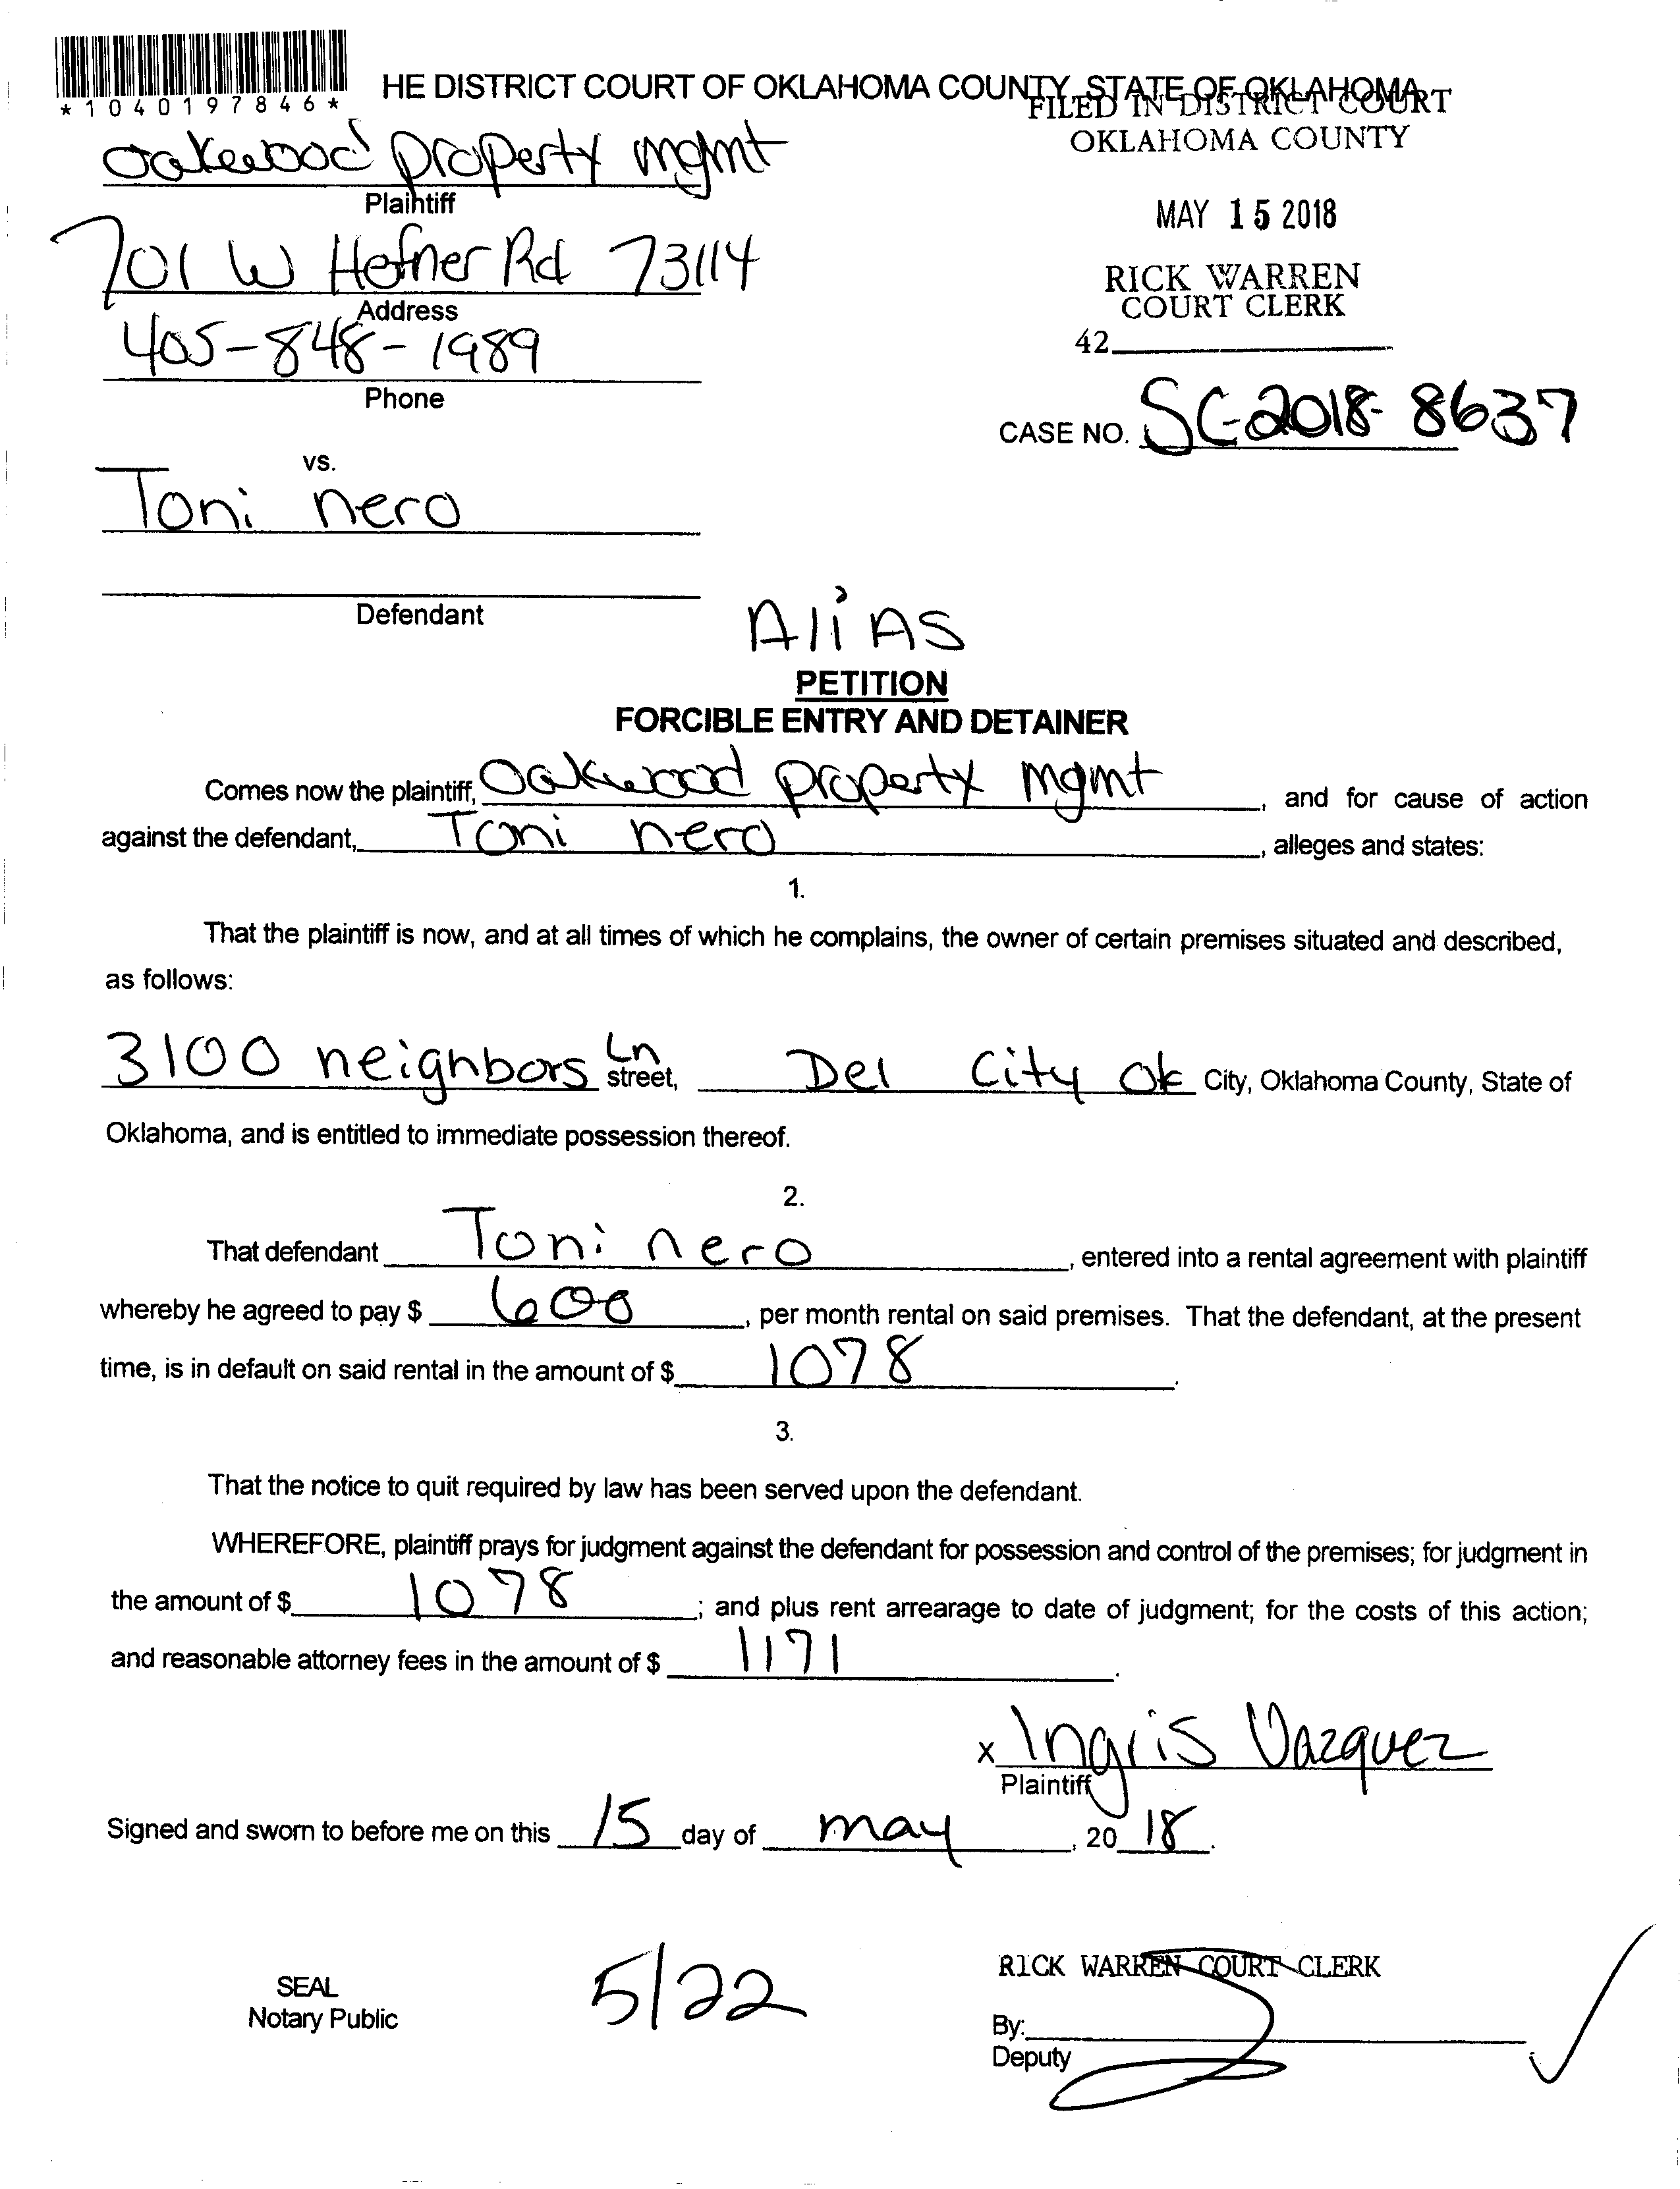 *1040197846*
HE DISTRICT COURT OF OKLAHOMA COUNTY, STATE OF OKLAHOMA
FILED IN DISTRICT COURT
OKLAHOMA COUNTY
Oakwood property mgmt
Plaintiff
MAY 15 2018
701 W Hefner Rd 73114
Address
RICK WARREN
COURT CLERK
405-848-1989
Phone
42
CASE NO. SC-2018-8637
vs.
Toni nero
Defendant
AliAS
PETITION
FORCIBLE ENTRY AND DETAINER
Comes now the plaintiff, Oakwood property mgmt, and for cause of action
against the defendant, Toni nero, alleges and states:
1.
That the plaintiff is now, and at all times of which he complains, the owner of certain premises situated and described,
as follows:
3100 neighbors Ln street, Del City Ok City, Oklahoma County, State of
Oklahoma, and is entitled to immediate possession thereof.
2.
That defendant Toni nero, entered into a rental agreement with plaintiff
whereby he agreed to pay $ 600, per month rental on said premises. That the defendant, at the present
time, is in default on said rental in the amount of $ 1078.
3.
That the notice to quit required by law has been served upon the defendant.
WHEREFORE, plaintiff prays for judgment against the defendant for possession and control of the premises; for judgment in
the amount of $ 1078; and plus rent arrearage to date of judgment; for the costs of this action;
and reasonable attorney fees in the amount of $ 1171.
x Ingris Vazquez
Plaintiff
Signed and sworn to before me on this 15 day of may, 20 18.
SEAL
Notary Public
5/22
RICK WARREN COURT CLERK
By:
Deputy